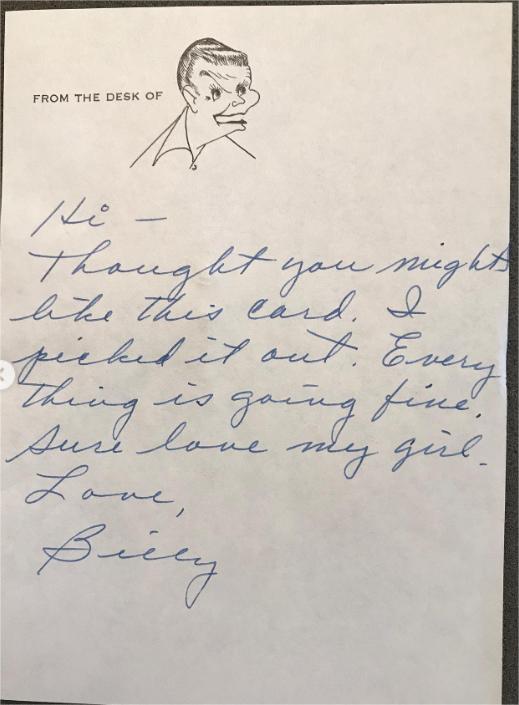 FROM THE DESK OF
Hi —
Thought you might
like this card. I
picked it out. Every
thing is going fine.
Sure love my girl.
Love,
Billy